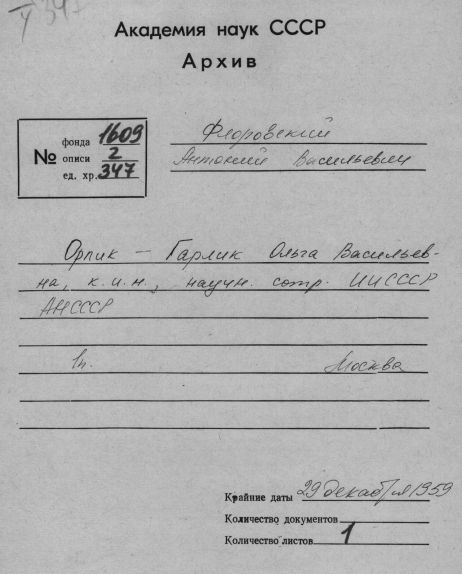 347
Академия наук СССР
Архив
№
фонда 1609
описи 2
ед. хр. 347
Флоровский
Антоний Васильевич
Орлик - Гарлик Ольга Васильев-
на, к.и.н., научн. сотр. ИИСССР
АНСССР
1п. Москва
Крайние даты 29 декабря 1959
Количество документов
Количество листов 1